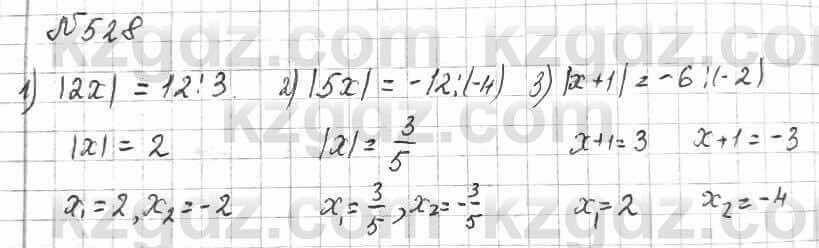 №528
1) |2x| = 12:3 2) |5x| = -12:(-4) 3) |x+1| = -6:(-2)
|x| = 2 |x| = 3/5 x+1 = 3 x+1 = -3
x₁ = 2, x₂ = -2 x₁ = 3/5, x₂ = -3/5 x₁ = 2 x₂ = -4
kzgdz.com kzgdz.com
kzgdz.com kzgdz.com
kzgdz.com kzgdz.com